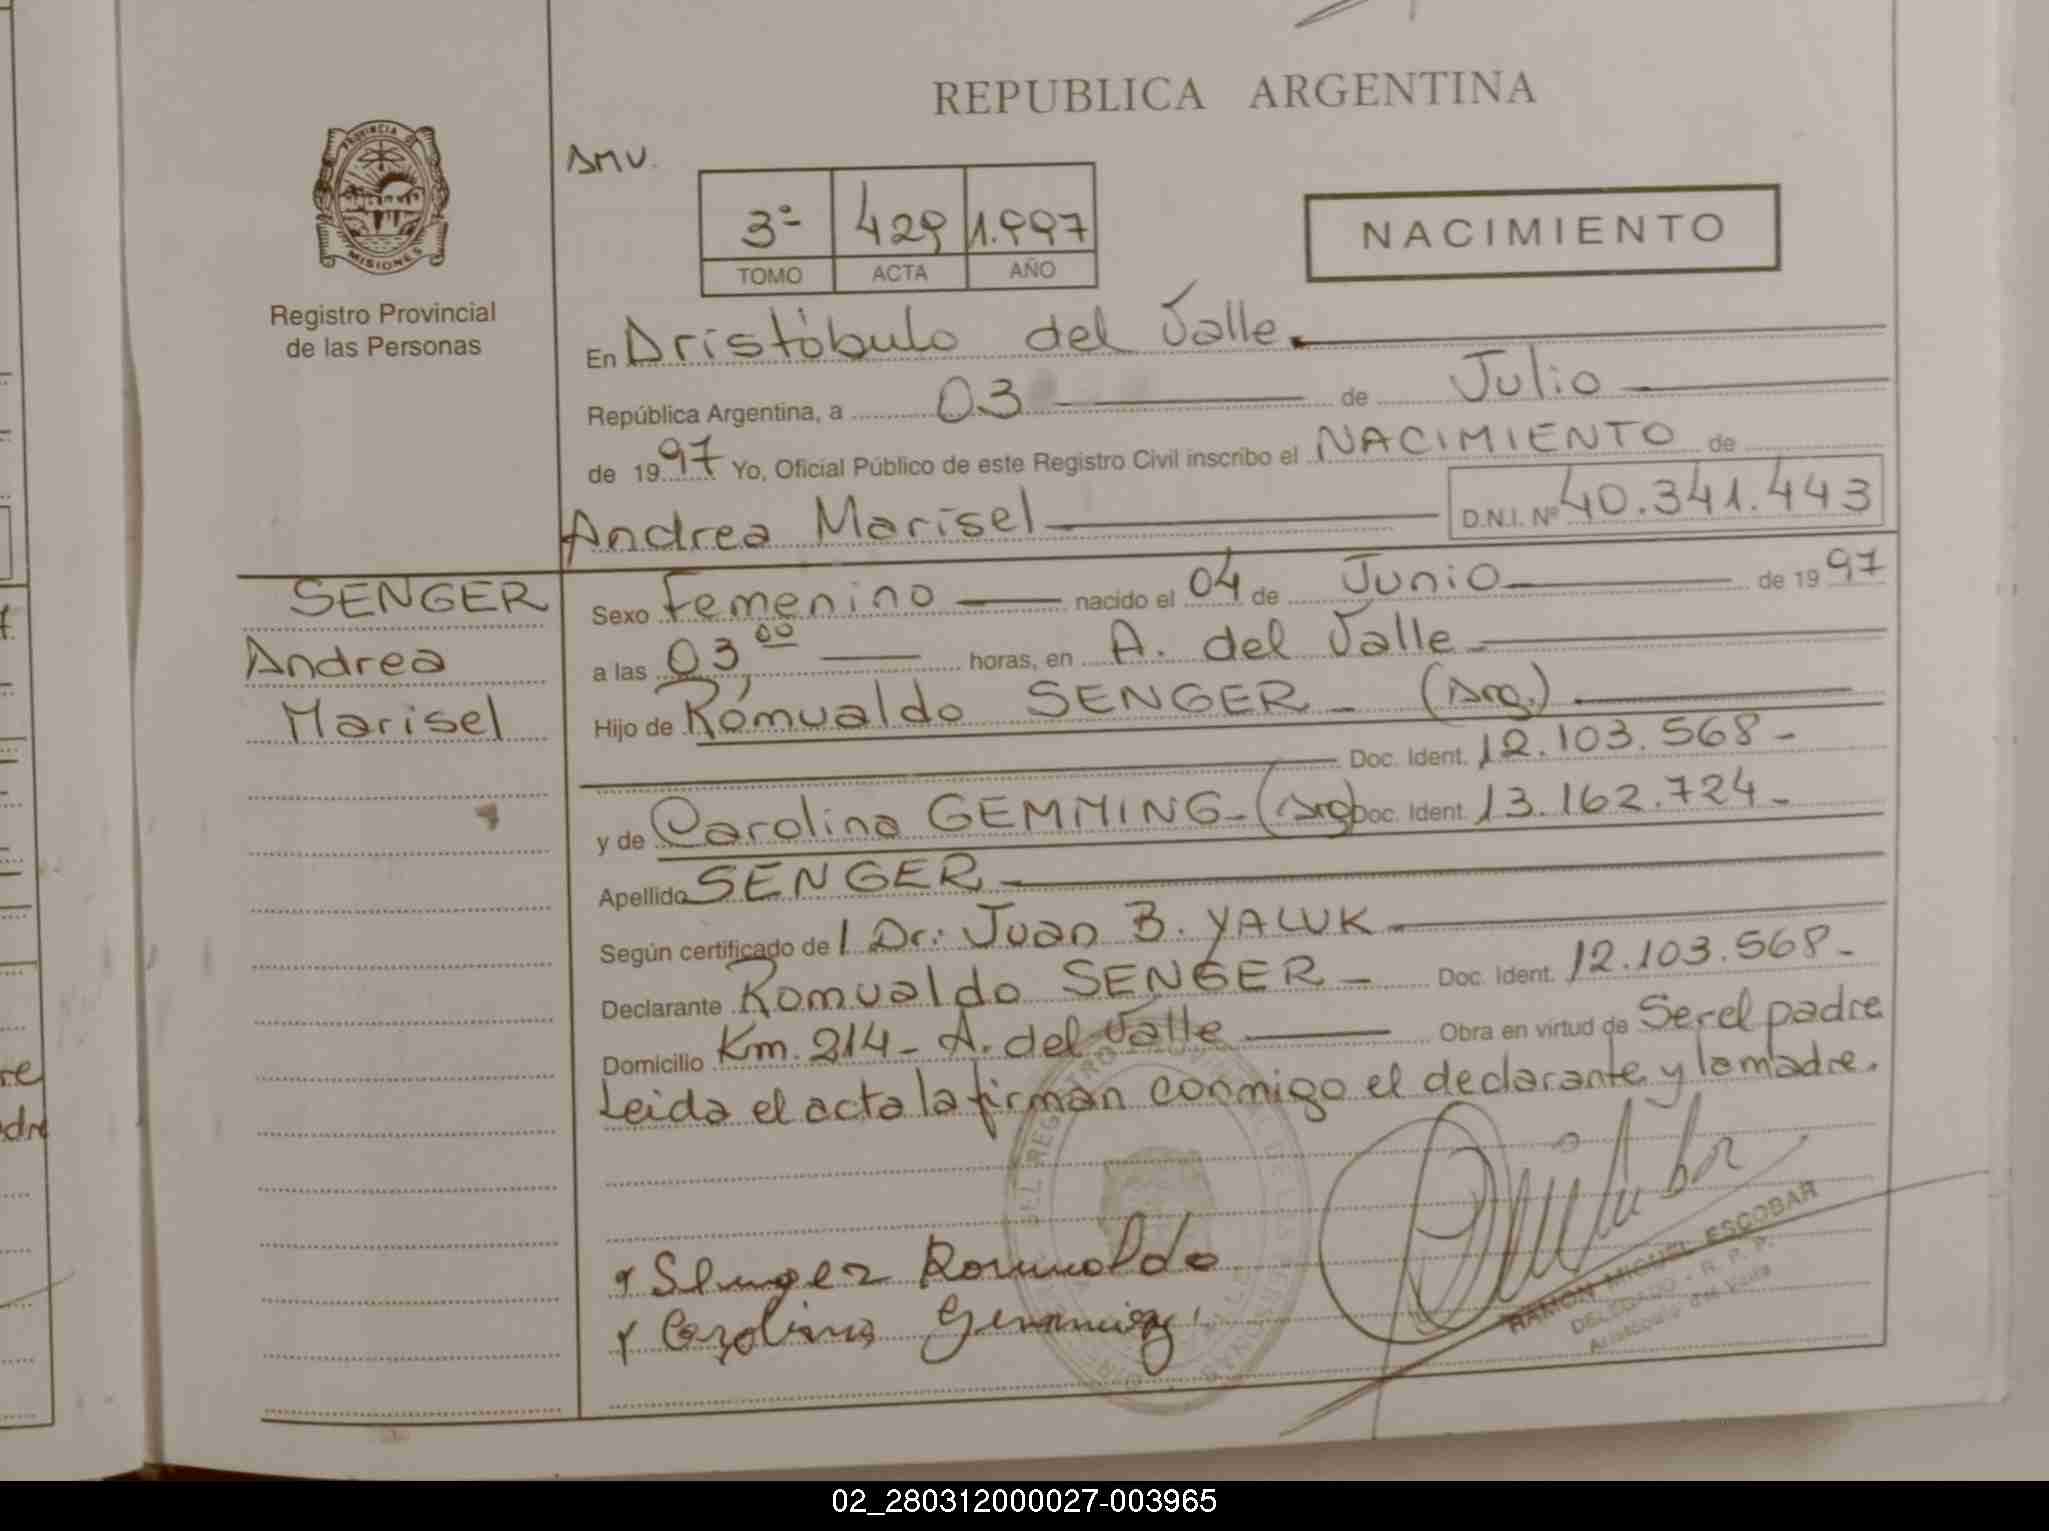 REPUBLICA ARGENTINA
PROVINCIA DE
MISIONES
Registro Provincial
de las Personas
3º 429 1.997
TOMO ACTA AÑO
NACIMIENTO
En Aristóbulo del Valle.
República Argentina, a 03 de Julio
de 1997 Yo, Oficial Público de este Registro Civil inscribo el NACIMIENTO de
Andrea Marisel D.N.I. Nº 40.341.443
SENGER
Andrea
Marisel
Sexo Femenino nacido el 04 de Junio de 1997
a las 03,00 horas, en A. del Valle
Hijo de Romualdo SENGER - (Arg.)
Doc. Ident. 12.103.568-
y de Carolina GEMMING - (Arg) Doc. Ident. 13.162.724-
Apellido SENGER
Según certificado de / Dr: Juan B. YALUK
Declarante Romualdo SENGER - Doc. Ident. 12.103.568-
Domicilio Km. 214 - A. del Valle Obra en virtud de Ser el padre
Leida el acta la firman conmigo el declarante y la madre.
Senger Romualdo
Carolina Gemming
RAMON MIGUEL ESCOBAR
DELEGADO - R. P. P.
Aristóbulo del Valle
re
dre
02_280312000027-003965